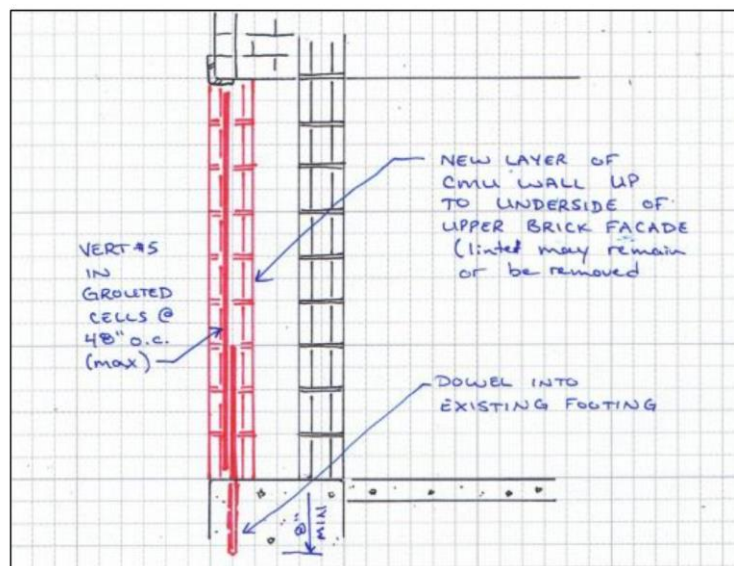 NEW LAYER OF
CMU WALL UP
TO UNDERSIDE OF
UPPER BRICK FACADE
(lintel may remain
or be removed
VERT #5
IN
GROUTED
CELLS @
48" o.c.
(max)
DOWEL INTO
EXISTING FOOTING
8"
MIN